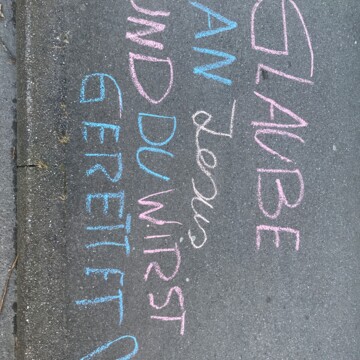 GLAUBE
AN Jesus
UND DU WIRST
GERETTET